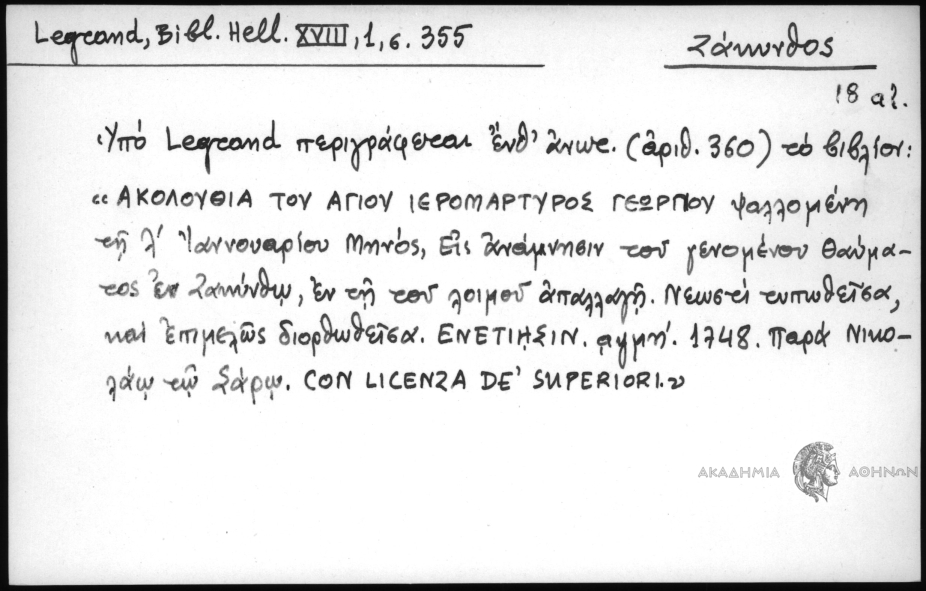 Legrand, Bibl. Hell. XVIII, 1, σ. 355
Ζάκυνθος
18 αἰ.
Ὑπό Legrand περιγράφεται ἔνθ' ἄνωτ. (ἀριθ. 360) τό βιβλίον:
«ΑΚΟΛΟΥΘΙΑ ΤΟΥ ΑΓΙΟΥ ΙΕΡΟΜΑΡΤΥΡΟΣ ΓΕΩΡΓΙΟΥ ψαλλομένη
τῇ λ' Ἰαννουαρίου Μηνός, Εἰς ἀνάμνησιν τοῦ γενομένου θαύμα-
τος ἐν Ζακύνθῳ, ἐν τῇ τοῦ λοιμοῦ ἀπαλλαγῇ. Νεωστί τυπωθεῖσα,
καί ἐπιμελῶς διορθωθεῖσα. ΕΝΕΤΙῌΣΙΝ. ͵αψμη'. 1748. Παρά Νικο-
λάῳ τῷ Σάρῳ. CON LICENZA DE' SUPERIORI.»
ΑΚΑΔΗΜΙΑ ΑΘΗΝΩΝ